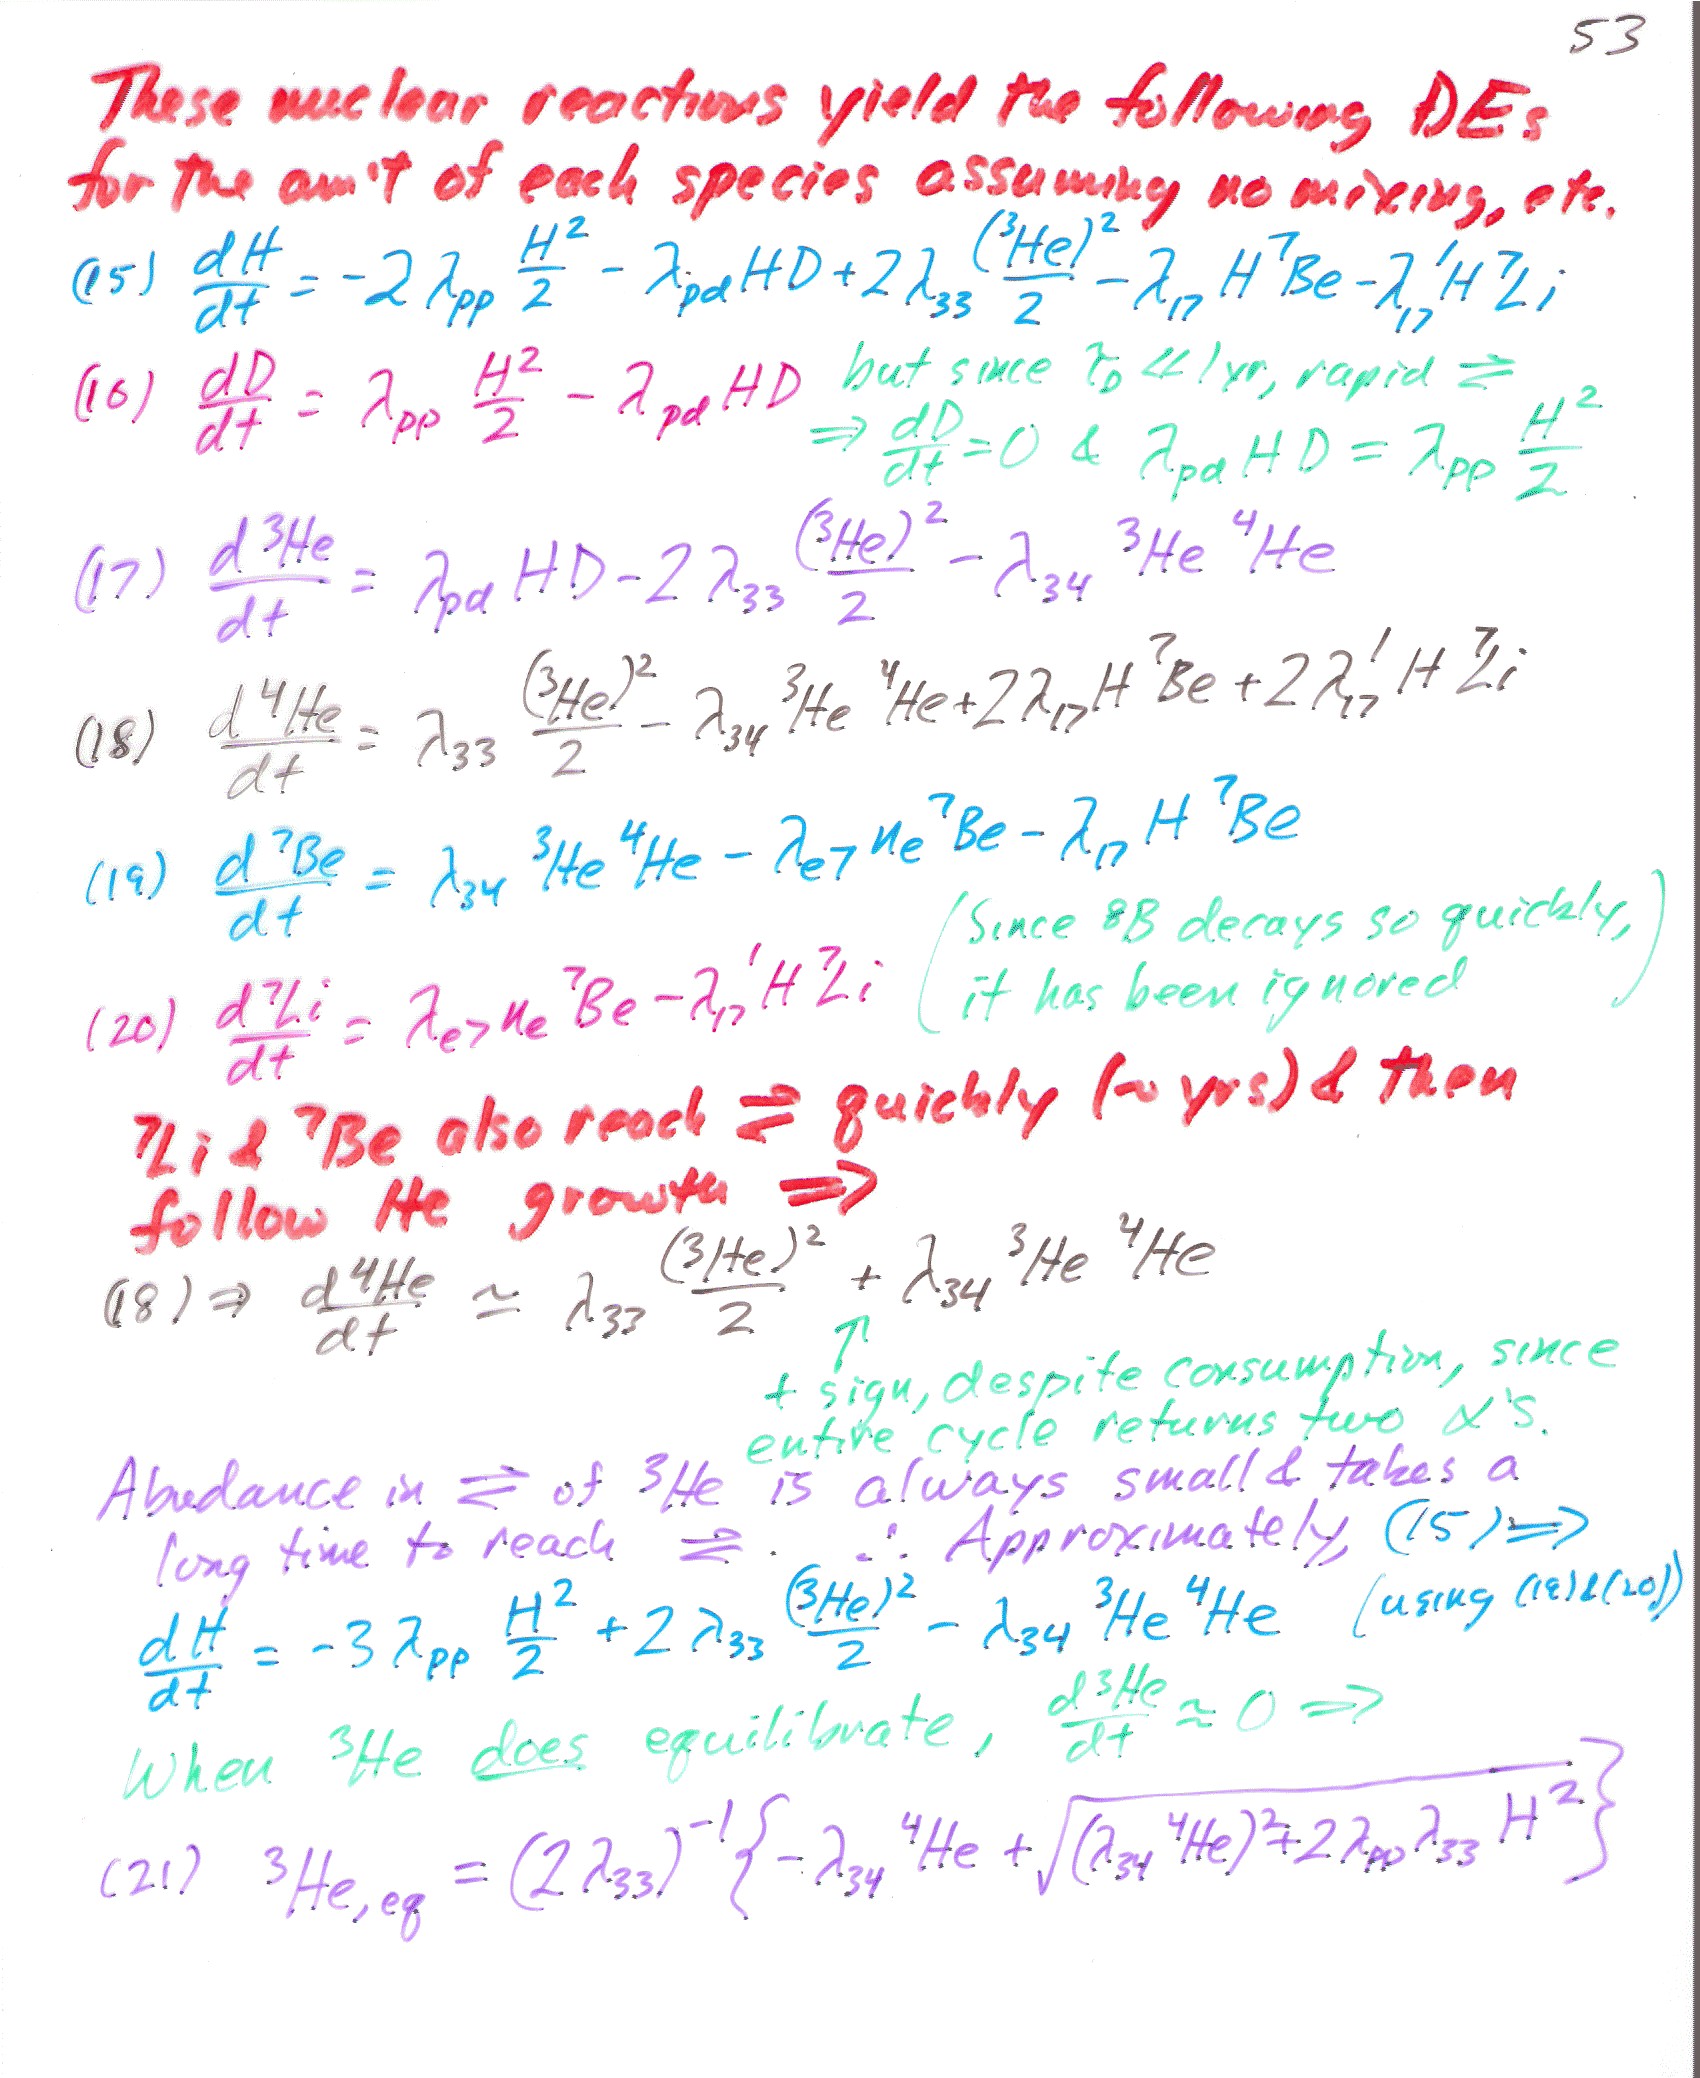 53
These nuclear reactions yield the following DEs
for the am't of each species assuming no mixing, etc.
(15) dH/dt = -2 λpp H²/2 - λpd HD + 2 λ33 (³He)²/2 - λ17 H ⁷Be - λ17' H ⁷Li
(16) dD/dt = λpp H²/2 - λpd HD but since τD << 1 yr, rapid ⇌
⇒ dD/dt = 0 & λpd HD = λpp H²/2
(17) d³He/dt = λpd HD - 2 λ33 (³He)²/2 - λ34 ³He ⁴He
(18) d⁴He/dt = λ33 (³He)²/2 - λ34 ³He ⁴He + 2 λ17 H ⁷Be + 2 λ17' H ⁷Li
(19) d⁷Be/dt = λ34 ³He ⁴He - λe7 ne ⁷Be - λ17 H ⁷Be
(Since 8B decays so quickly,
it has been ignored)
(20) d⁷Li/dt = λe7 ne ⁷Be - λ17' H ⁷Li
⁷Li & ⁷Be also reach ⇌ quickly (~ yrs) & then
follow He growth ⇒
(18) ⇒ d⁴He/dt ≃ λ33 (³He)²/2 + λ34 ³He ⁴He
↑
+ sign, despite consumption, since
entire cycle returns two α's.
Abudance in ⇌ of ³He is always small & takes a
long time to reach ⇌. ∴ Approximately, (15) ⇒
dH/dt = -3 λpp H²/2 + 2 λ33 (³He)²/2 - λ34 ³He ⁴He (using (19) & (20))
When ³He does equilibrate, d³He/dt ≈ 0 ⇒
(21) ³He,eq = (2 λ33)⁻¹ { - λ34 ⁴He + √((λ34 ⁴He)² + 2 λpp λ33 H²) }